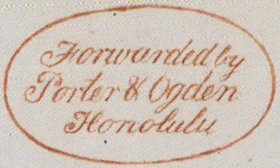 Forwarded by
Porter & Ogden
Honolulu